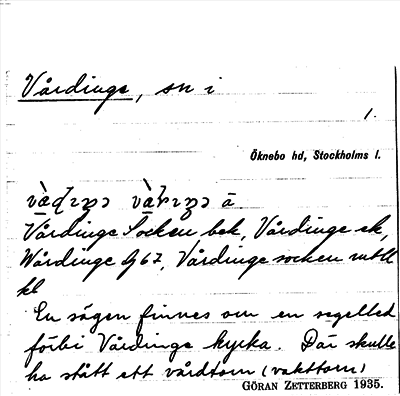 Vårdinge, sn i
1.
Öknebo hd, Stockholms l.
Vårdinge Socken bek, Vårdinge ek,
Wårdinge Gg 67, Vårdinge socken
kl
En sägen finnes om en segelled
förbi Vårdinge kyrka. Där skulle
ha stått ett vårdtorn (vakttorn)
GÖRAN ZETTERBERG 1935.